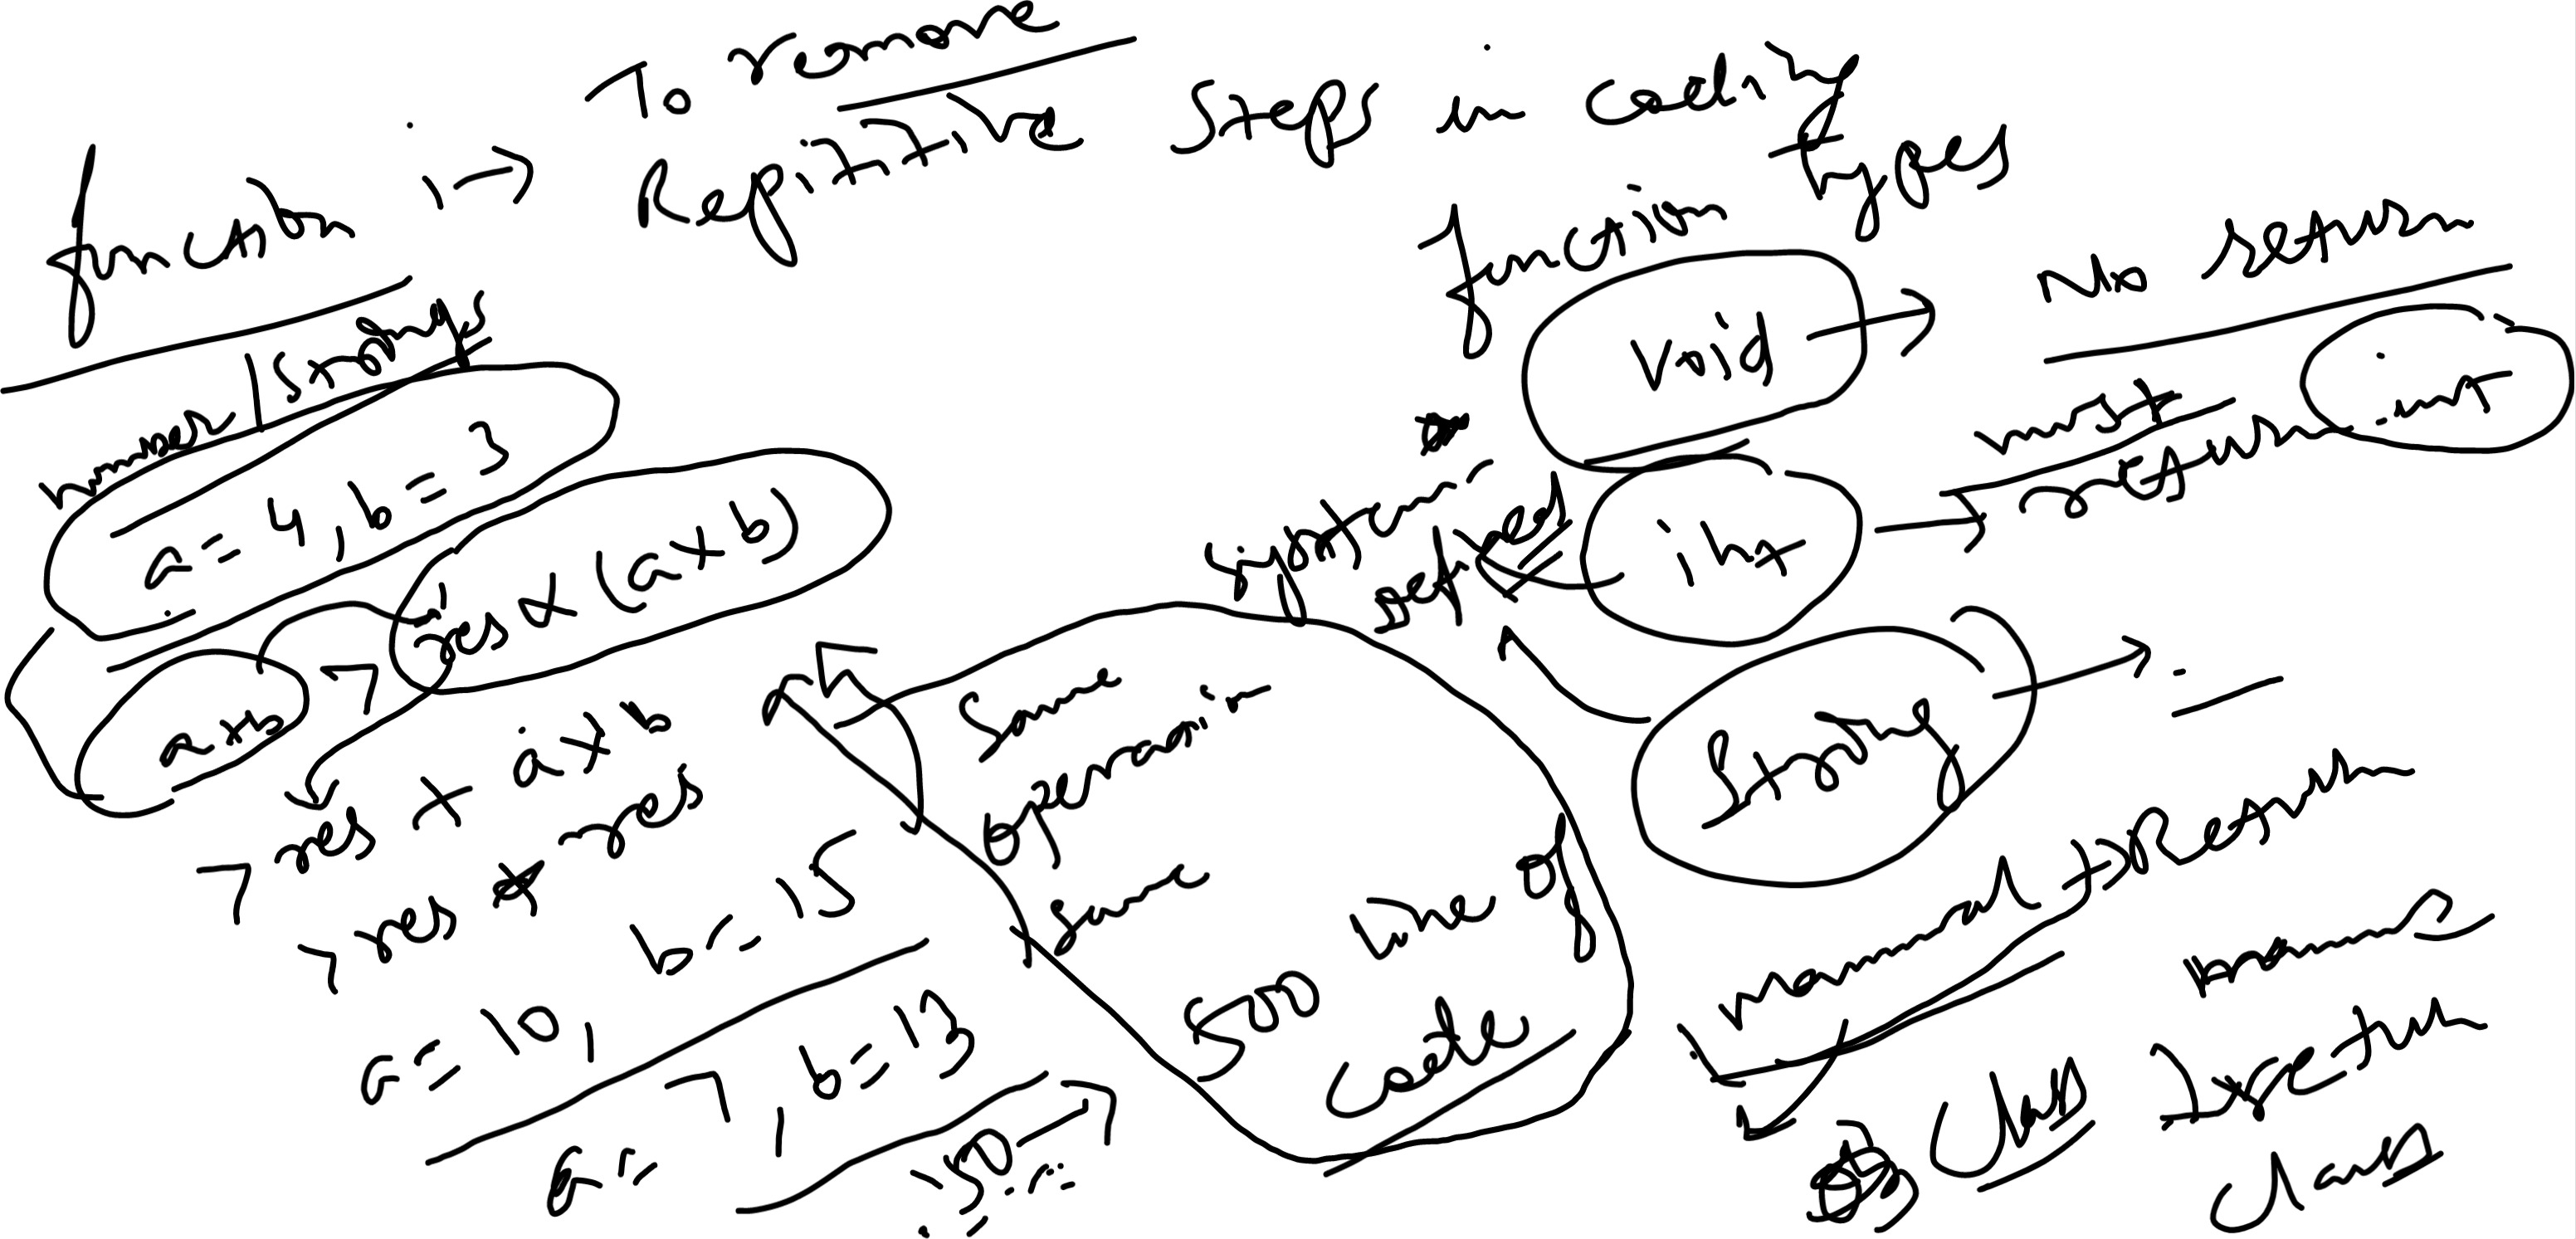 function :→ To remove
Repititive Steps in coding
number / Strings
a = 4, b = 3
a+b → res * (a+b)
→ res + a+b
→ res * res
a = 10, b = 15
a = 7, b = 13
50 →
Same
operation
Same
500 line of
Code
function types
void → No return
int → must return int
System
defined
String →
manual → Return
Class return
class